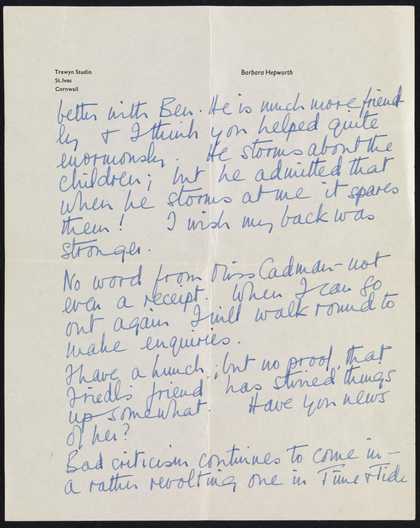 Trewyn Studio
St. Ives
Cornwall
Barbara Hepworth
better with Ben. He is much more friend
ly & I think you helped quite
enormously. He storms about the
children; but he admitted that
when he storms at me it spares
them! I wish my back was
stronger.
No word from Miss Cadman - not
even a receipt. When I can go
out again I will walk round to
make enquiries.
I have a hunch, but no proof, that
Friedl's friend has stirred things
up somewhat. Have you news
of her?
Bad criticism continues to come in -
a rather revolting one in Time & Tide